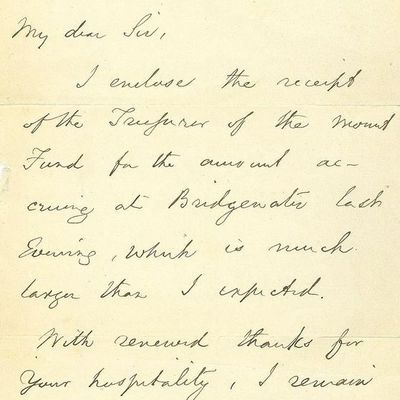 My dear Sir,
I enclose the receipt
of the Treasurer of the Mount
Fund for the amount ac-
cruing at Bridgewater last
Evening, which is much
larger than I expected.
With renewed thanks for
Your hospitality, I remain